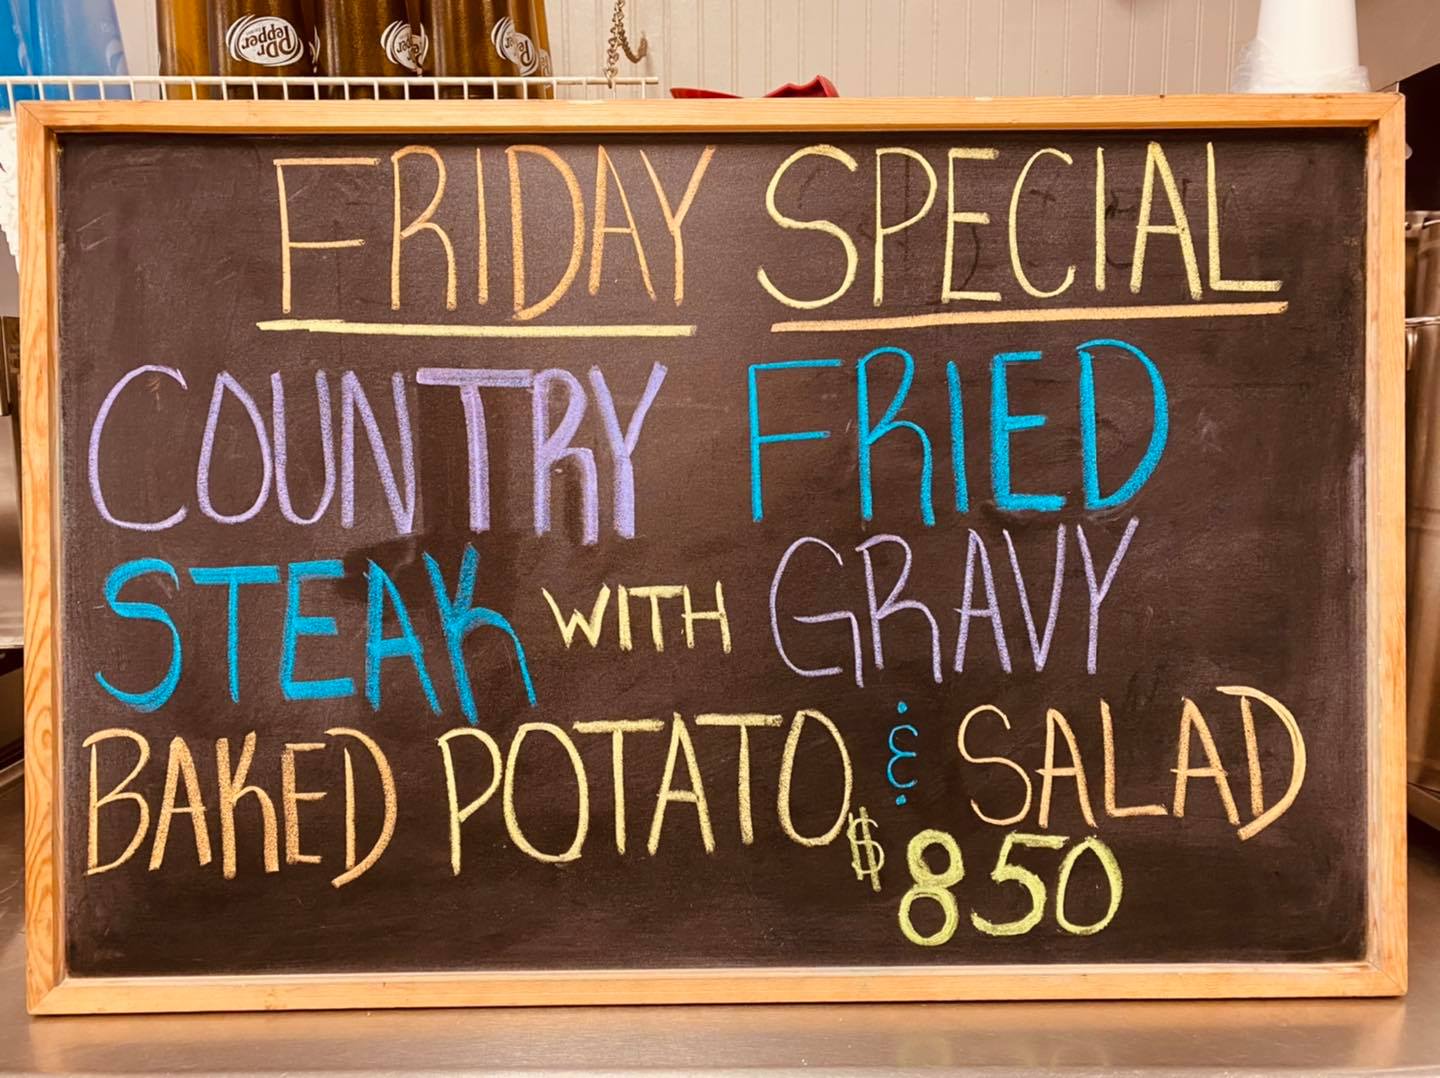 Dr Pepper
FRIDAY SPECIAL
COUNTRY FRIED
STEAK WITH GRAVY
BAKED POTATO & SALAD
$850